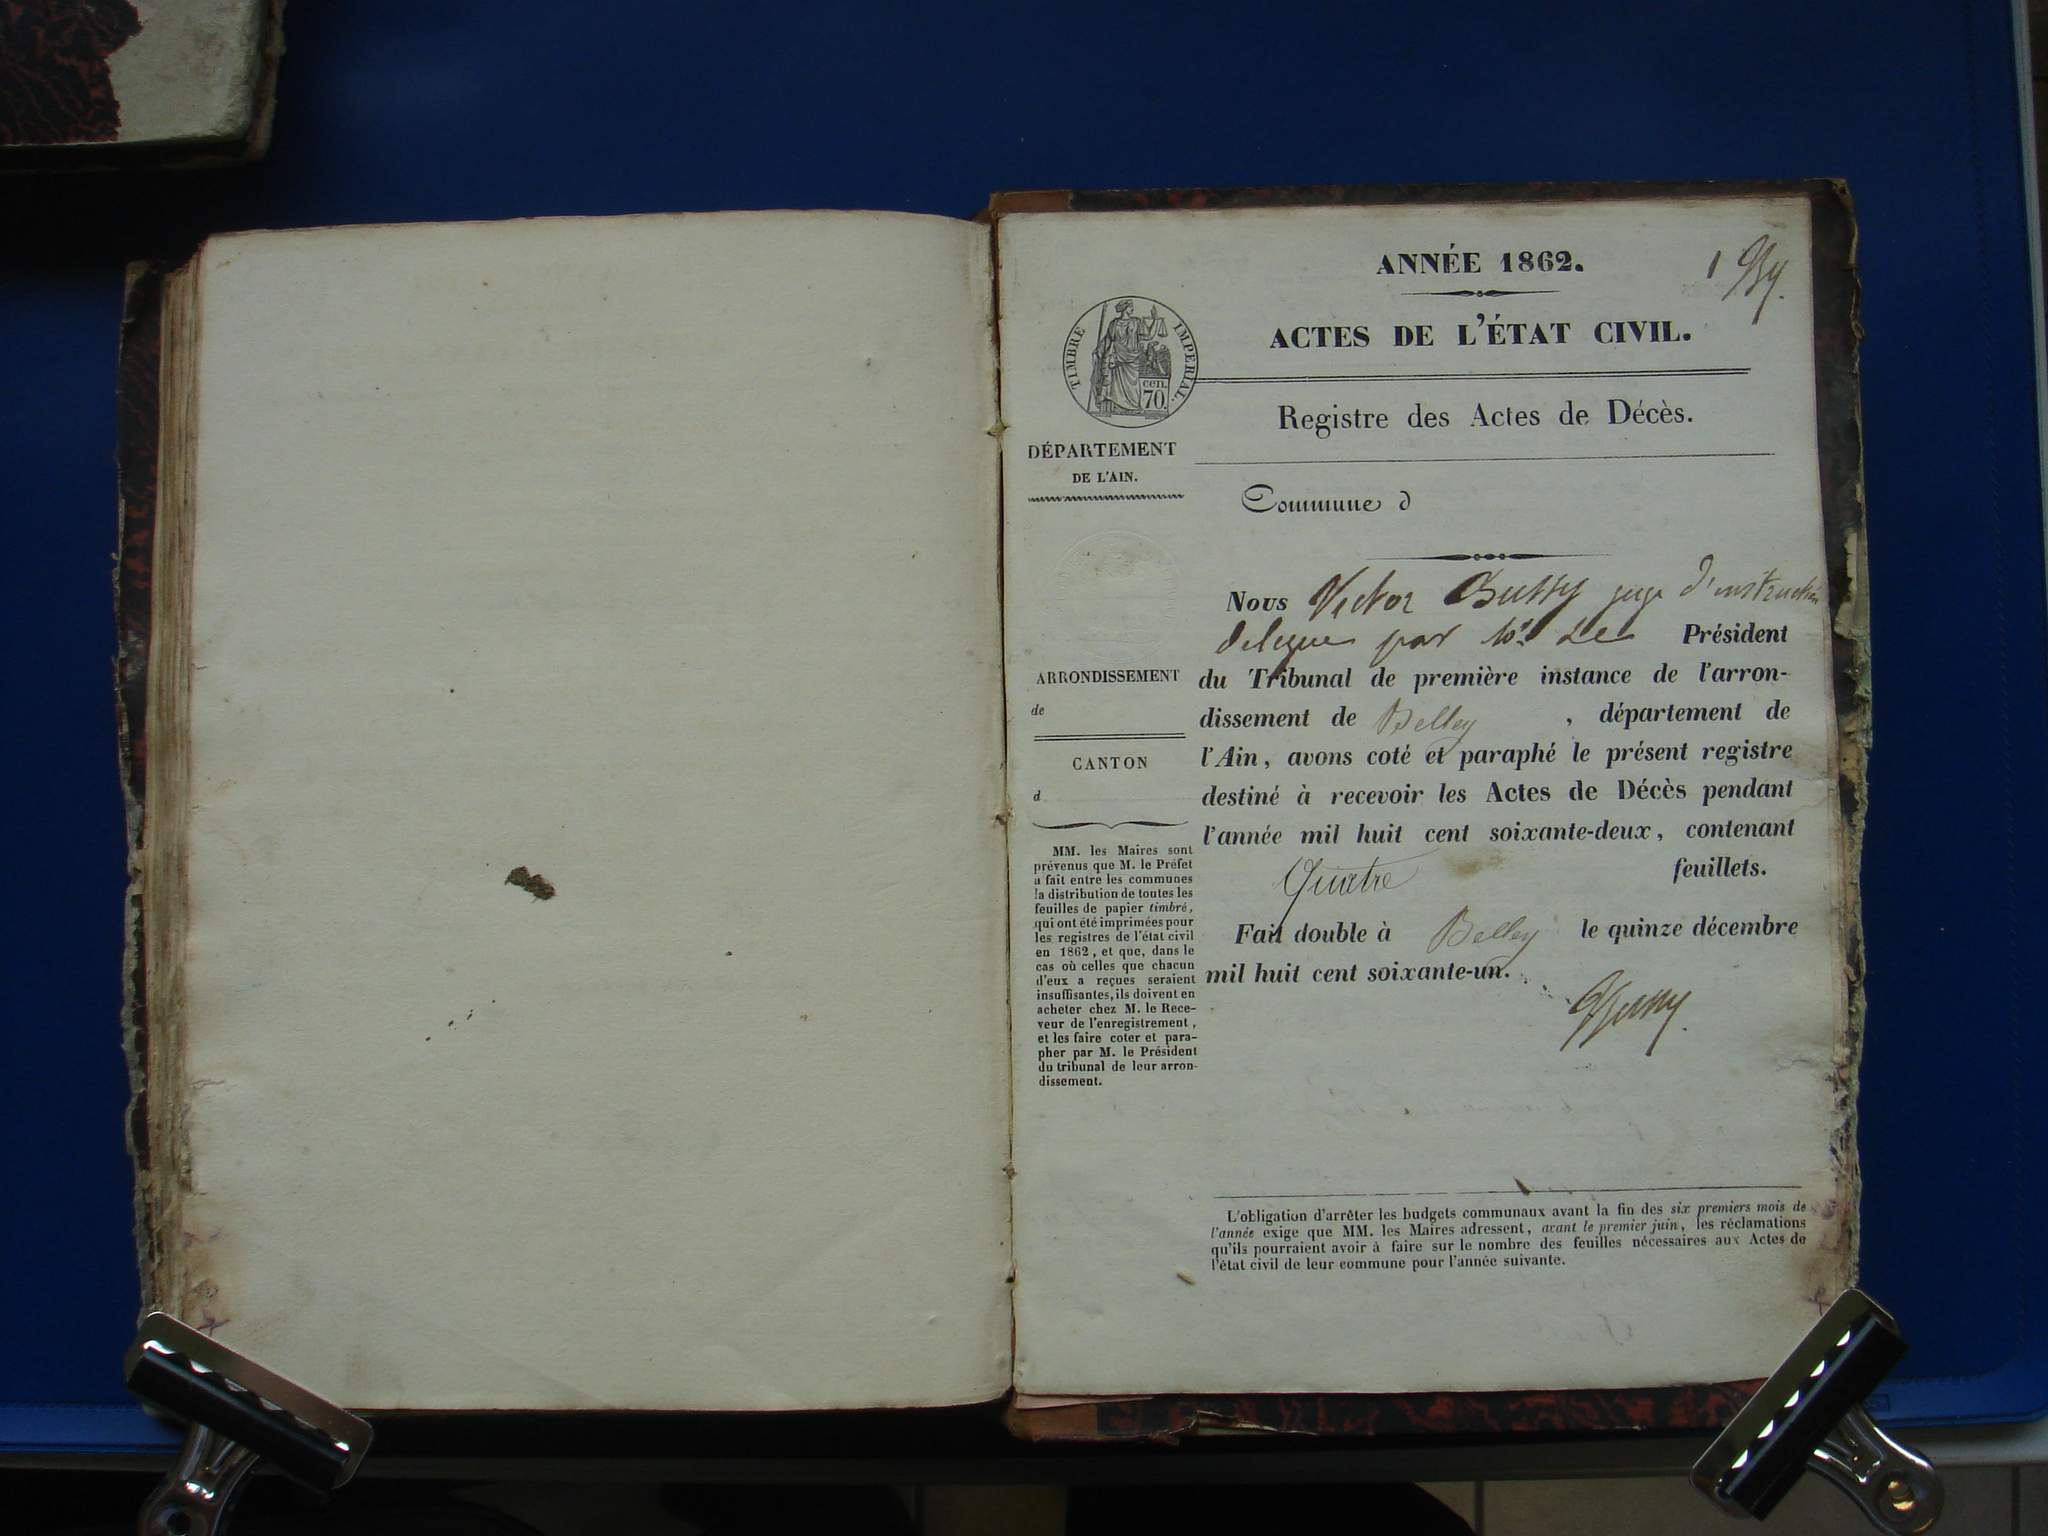 ANNÉE 1862.
1
ACTES DE L'ÉTAT CIVIL.
TIMBRE IMPERIAL.
cen.
70.
Registre des Actes de Décès.
DÉPARTEMENT
DE L'AIN.
Commune d
Nous Victor Bussy juge d'instruction
délégué par Mr Le Président
du Tribunal de première instance de l'arron-
dissement de Belley , département de
l'Ain, avons coté et paraphé le présent registre
destiné à recevoir les Actes de Décès pendant
l'année mil huit cent soixante-deux, contenant
Quatre feuillets.
Fait double à Belley le quinze décembre
mil huit cent soixante-un.
Bussy
ARRONDISSEMENT
de
CANTON
d
MM. les Maires sont
prévenus que M. le Préfet
a fait entre les communes
la distribution de toutes les
feuilles de papier timbré,
qui ont été imprimées pour
les registres de l'état civil
en 1862, et que, dans le
cas où celles que chacun
d'eux a reçues seraient
insuffisantes, ils doivent en
acheter chez M. le Rece-
veur de l'enregistrement,
et les faire coter et para-
pher par M. le Président
du tribunal de leur arron-
dissement.
L'obligation d'arrêter les budgets communaux avant la fin des six premiers mois de
l'année exige que MM. les Maires adressent, avant le premier juin, les réclamations
qu'ils pourraient avoir à faire sur le nombre des feuilles nécessaires aux Actes de
l'état civil de leur commune pour l'année suivante.